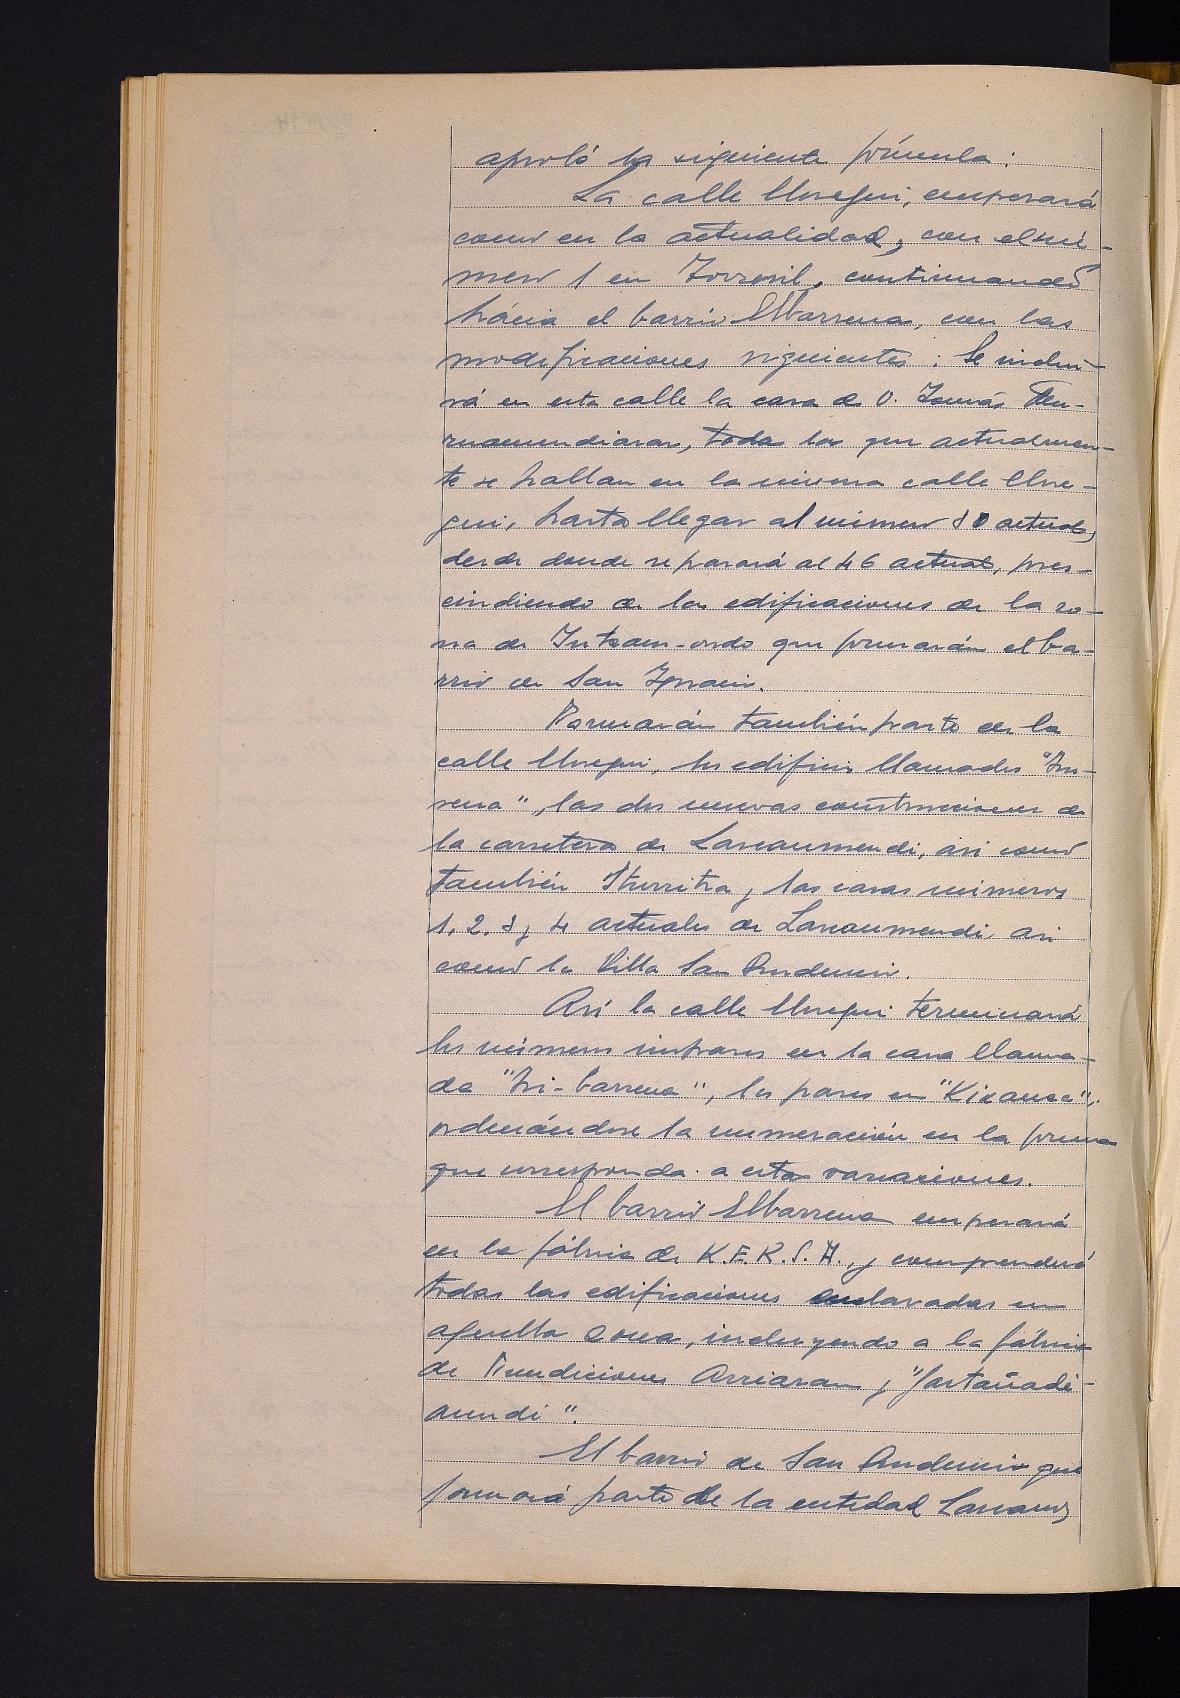 aprobó la siguiente fórmula:
La calle Urregui, empezará
como en la actualidad, con el nú-
mero 1 en Zorzoril, continuando
hácia el barrio Elbarrena, con las
modificaciones siguientes: Se inclui-
rá en esta calle la casa de D. Tomás
todas las que actualmen-
te se hallan en la misma calle Urre-
gui, hasta llegar al número 80 actual,
desde donde se pasará al 46 actual, pres-
cindiendo de las edificaciones de la zo-
na de Intxaur-ondo que formarán el ba-
rrio de San Ignacio.
Formarán también parte de la
calle Urregui, los edificios llamados
las dos nuevas construcciones de
la carretera de Lascaumendi, asi como
también Iturritza y las casas números
1, 2, 3 y 4 actuales de Lascaumendi, asi
como la Villa San Prudencio.
Asi la calle Urregui terminará
los números impares en la casa llama-
da "Iri-barrena", los pares en
ordenándose la numeración en la forma
que corresponda a estas variaciones.
El barrio Elbarrena empezará
en la fábrica de K.E.R.S.A., y comprenderá
todas las edificaciones enclavadas en
aquella zona, incluyendo a la fábrica
de Fundiciones Arriaran y "Gastañadi-
aundi".
El barrio de San Prudencio que
formará parte de la entidad Lascaum